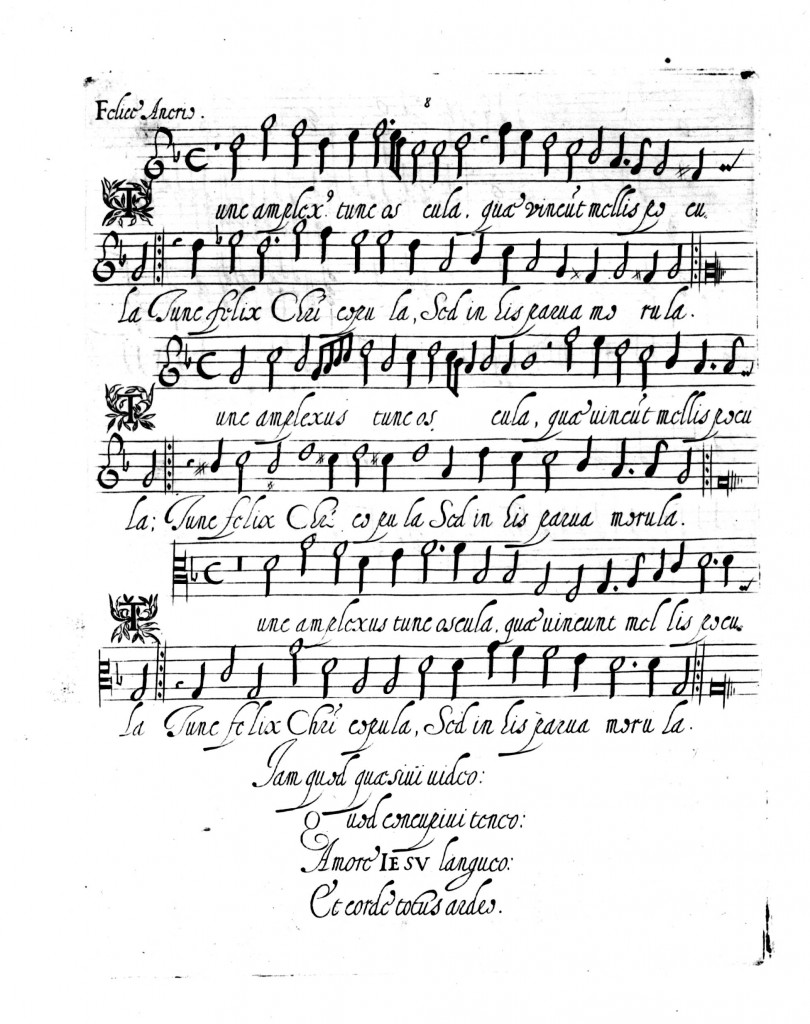 Felice Anerio.
8
Tunc amplex⁹ tunc os cula. quæ vincūt mellis po cu
la Tunc felix Chrī copu la, Sed in his parua mo rula.
Tunc amplexus tunc os cula, quæ uincūt mellis pocu
la; Tunc felix Chrī co pu la Sed in his parua morula.
Tunc amplexus tunc oscula. quæ uincunt mel lis pocu
la Tunc felix Chrī copula, Sed in his parua moru la.
Iam quod quæsiui uideo:
Quod concupiui teneo:
Amore IESV langueo:
Et corde totus ardeo.